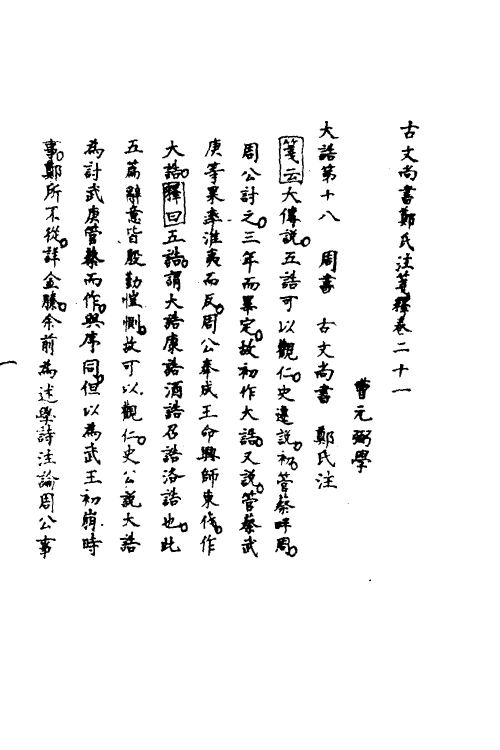 古文尚書鄭氏注箋釋卷二十一
曹元弼學
大誥第十八　周書　古文尚書　鄭氏注
箋云大傳說。五誥可以觀仁。史遷說。初管蔡畔周。
周公討之。三年而畢定。故初作大誥。又說。管蔡武
庚等果率淮夷而反。周公奉成王命興師東伐。作
大誥。釋曰五誥。謂大誥康誥酒誥召誥洛誥也。此
五篇辭意皆殷勤愷惻。故可以觀仁。史公說大誥
為討武庚管蔡而作。與序同。但以為武王初崩時
事。鄭所不從。詳金縢。余前為述學詩注論周公事
一